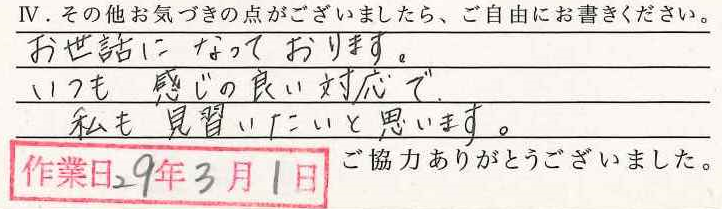 Ⅳ．その他お気づきの点がございましたら、ご自由にお書きください。
お世話になっております。
いつも 感じの良い対応で、
私も見習いたいと思います。
作業日29年3月1日
ご協力ありがとうございました。